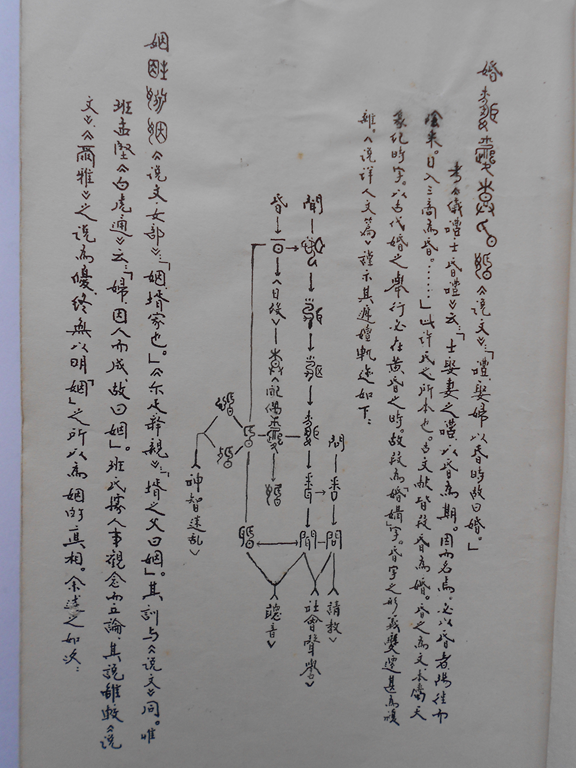 婚 《说文》:「禮,娶婦以昏時,故曰婚。」
考《儀禮·士昏禮》云:「士娶妻之禮,以昏為期。因而名焉。必以昏者,陽往而
陰來。日入三商為昏。……」此許氏之所本也。古文献皆段昏為婚。昏之為文,本屬天
象纪時字。以古代婚之舉行必在黄昏之時。故段為「婚」字。昏字之形義雙遷甚為
雜。《说詳人文篇》謹示其遞嬗軌迹如下:
聞
問 告 問
昏 《日後》 《配偶》
《請教》
《社會聲譽》
《聽音》
《神智迷乱》
姻 《说文·女部》:「姻,壻家也。」《尔疋·释親》:「壻之父曰姻」。其訓与《说文》同。唯
班孟堅《白虎通》云:「婦,因人而成,故曰姻」。班氏據人事觀念而立論,其說雖較《说
文》、《爾雅》之说為優,終無以明「姻」之所以為姻的真相。余述之如次: